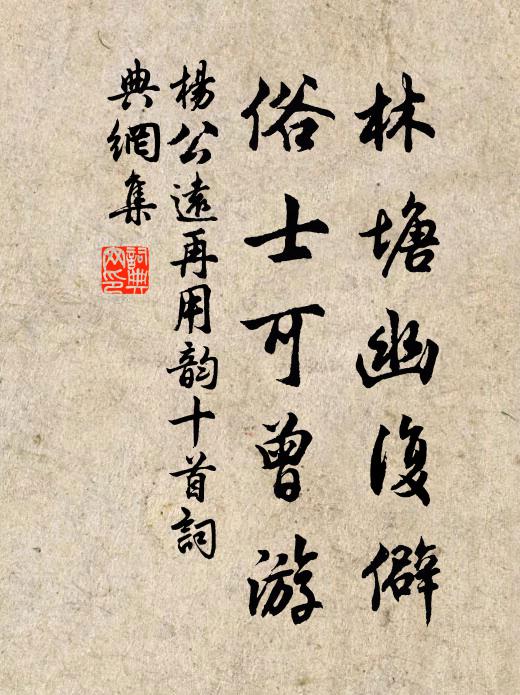 林塘幽復僻
俗士可曾游
楊公遠再用韵十首詞
典網集
詞典
网印